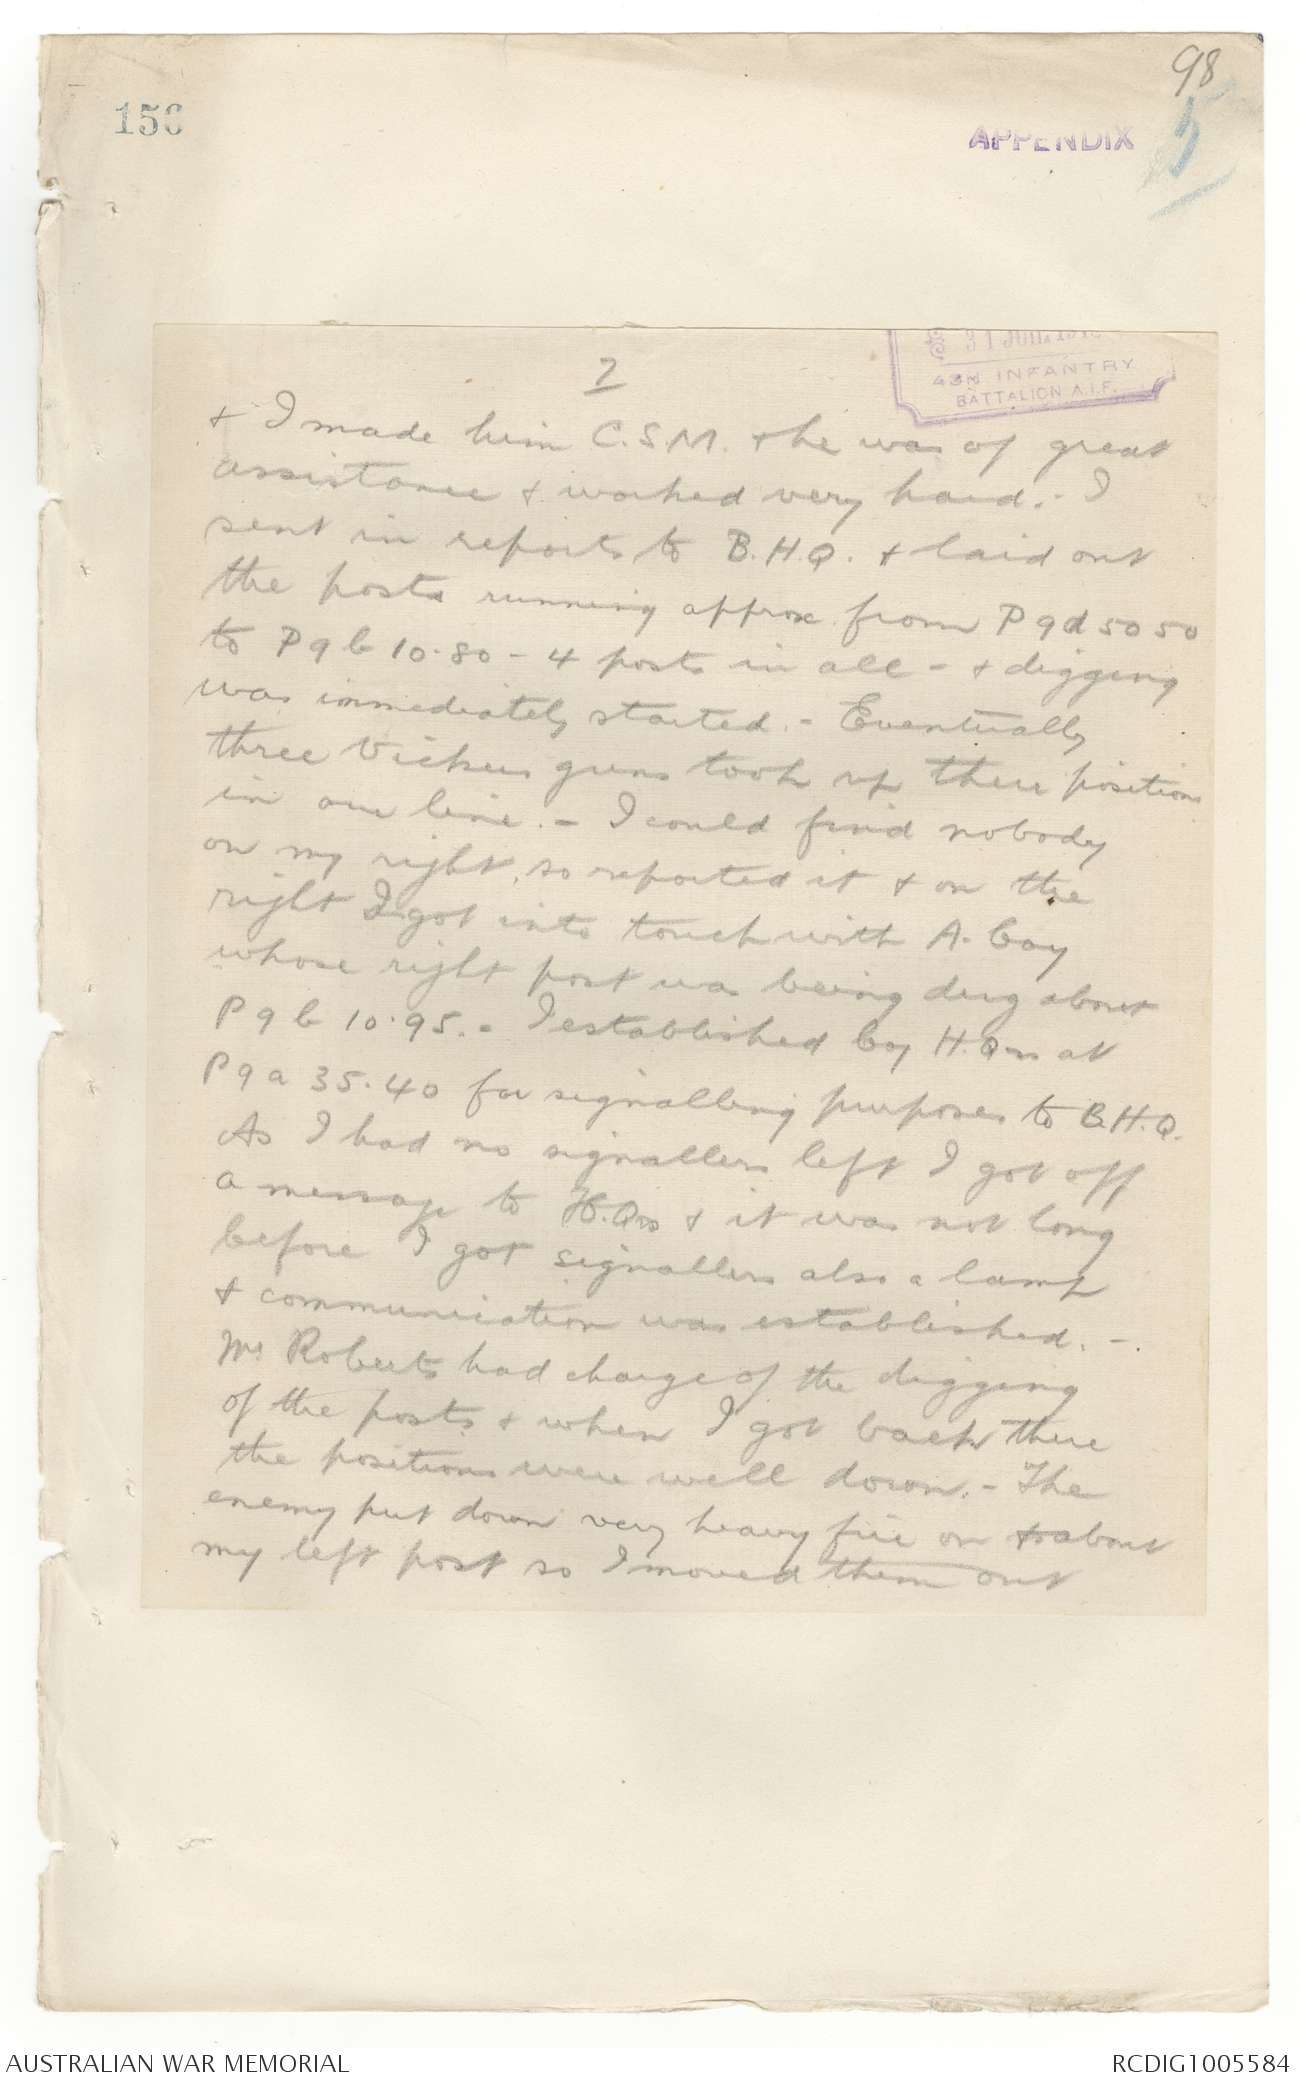 98
156
APPENDIX 5
31 JUL 191
43RD INFANTRY
BATTALION A.I.F.
2
+ I made him C.S.M. + he was of great
assistance + worked very hard. - I
sent in reports to B.H.Q. + laid out
the posts running approx from P9d 50 50
to P9b 10.80 - 4 posts in all - + digging
was immediately started. - Eventually
three Vickers guns took up there positions
in our line. - I could find nobody
on my right, so reported it + on the
right I got into touch with A. Coy
whose right post was being dug about
P9b 10.95. - I established Coy H.Qrs at
P9a 35.40 for signalling purposes to B.H.Q.
As I had no signallers left I got off
a message to H.Qrs + it was not long
before I got signallers also a lamp
+ communication was established. -.
Mr Roberts had charge of the digging
of the posts + when I got back there
the positions were well down. - The
enemy put down very heavy fire on + about
my left post so I moved them out
AUSTRALIAN WAR MEMORIAL
RCDIG1005584